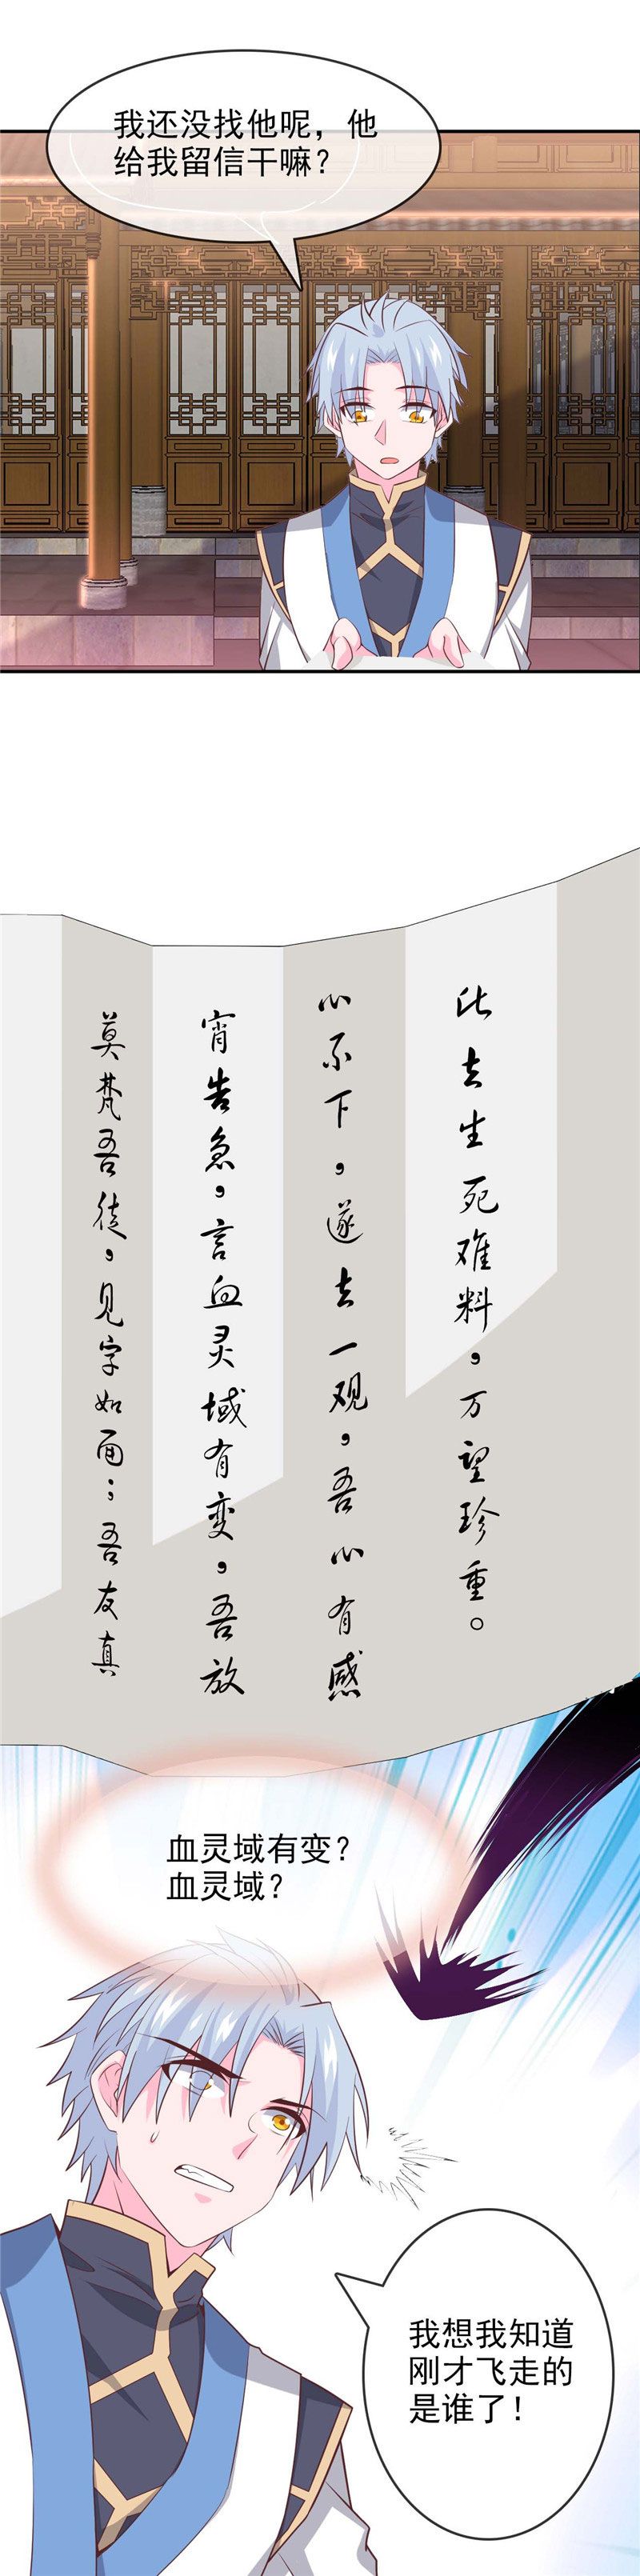 我还没找他呢，他
给我留信干嘛？
莫梵吾徒，见字如面；吾友真
宵告急，言血灵域有变，吾放
心不下，遂去一观，吾心有感
此去生死难料，万望珍重。
血灵域有变？
血灵域？
我想我知道
刚才飞走的
是谁了！